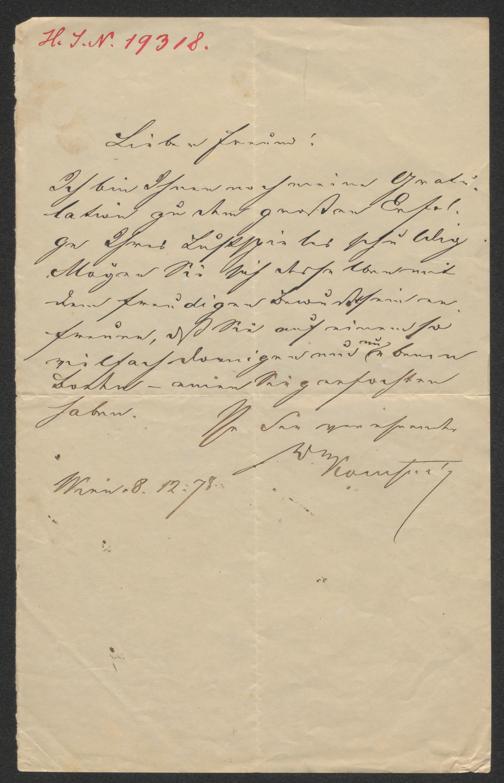 H. I. N. 19318.
Lieber Freund!
Ich bin Ihnen noch meine Gratu-
lation zu dem großen Erfol-
ge Ihres Lustspieles schuldig
Mögen Sie sich desselben mit
dem freudigen Bewußtsein er-
freuen, daß Sie auf einem so
vielfach dornigen und unebenen
Boden – einen Sieg erfochten
haben.
Ihr Sie verehrender
Kompert
Wien 8. 12. 78.